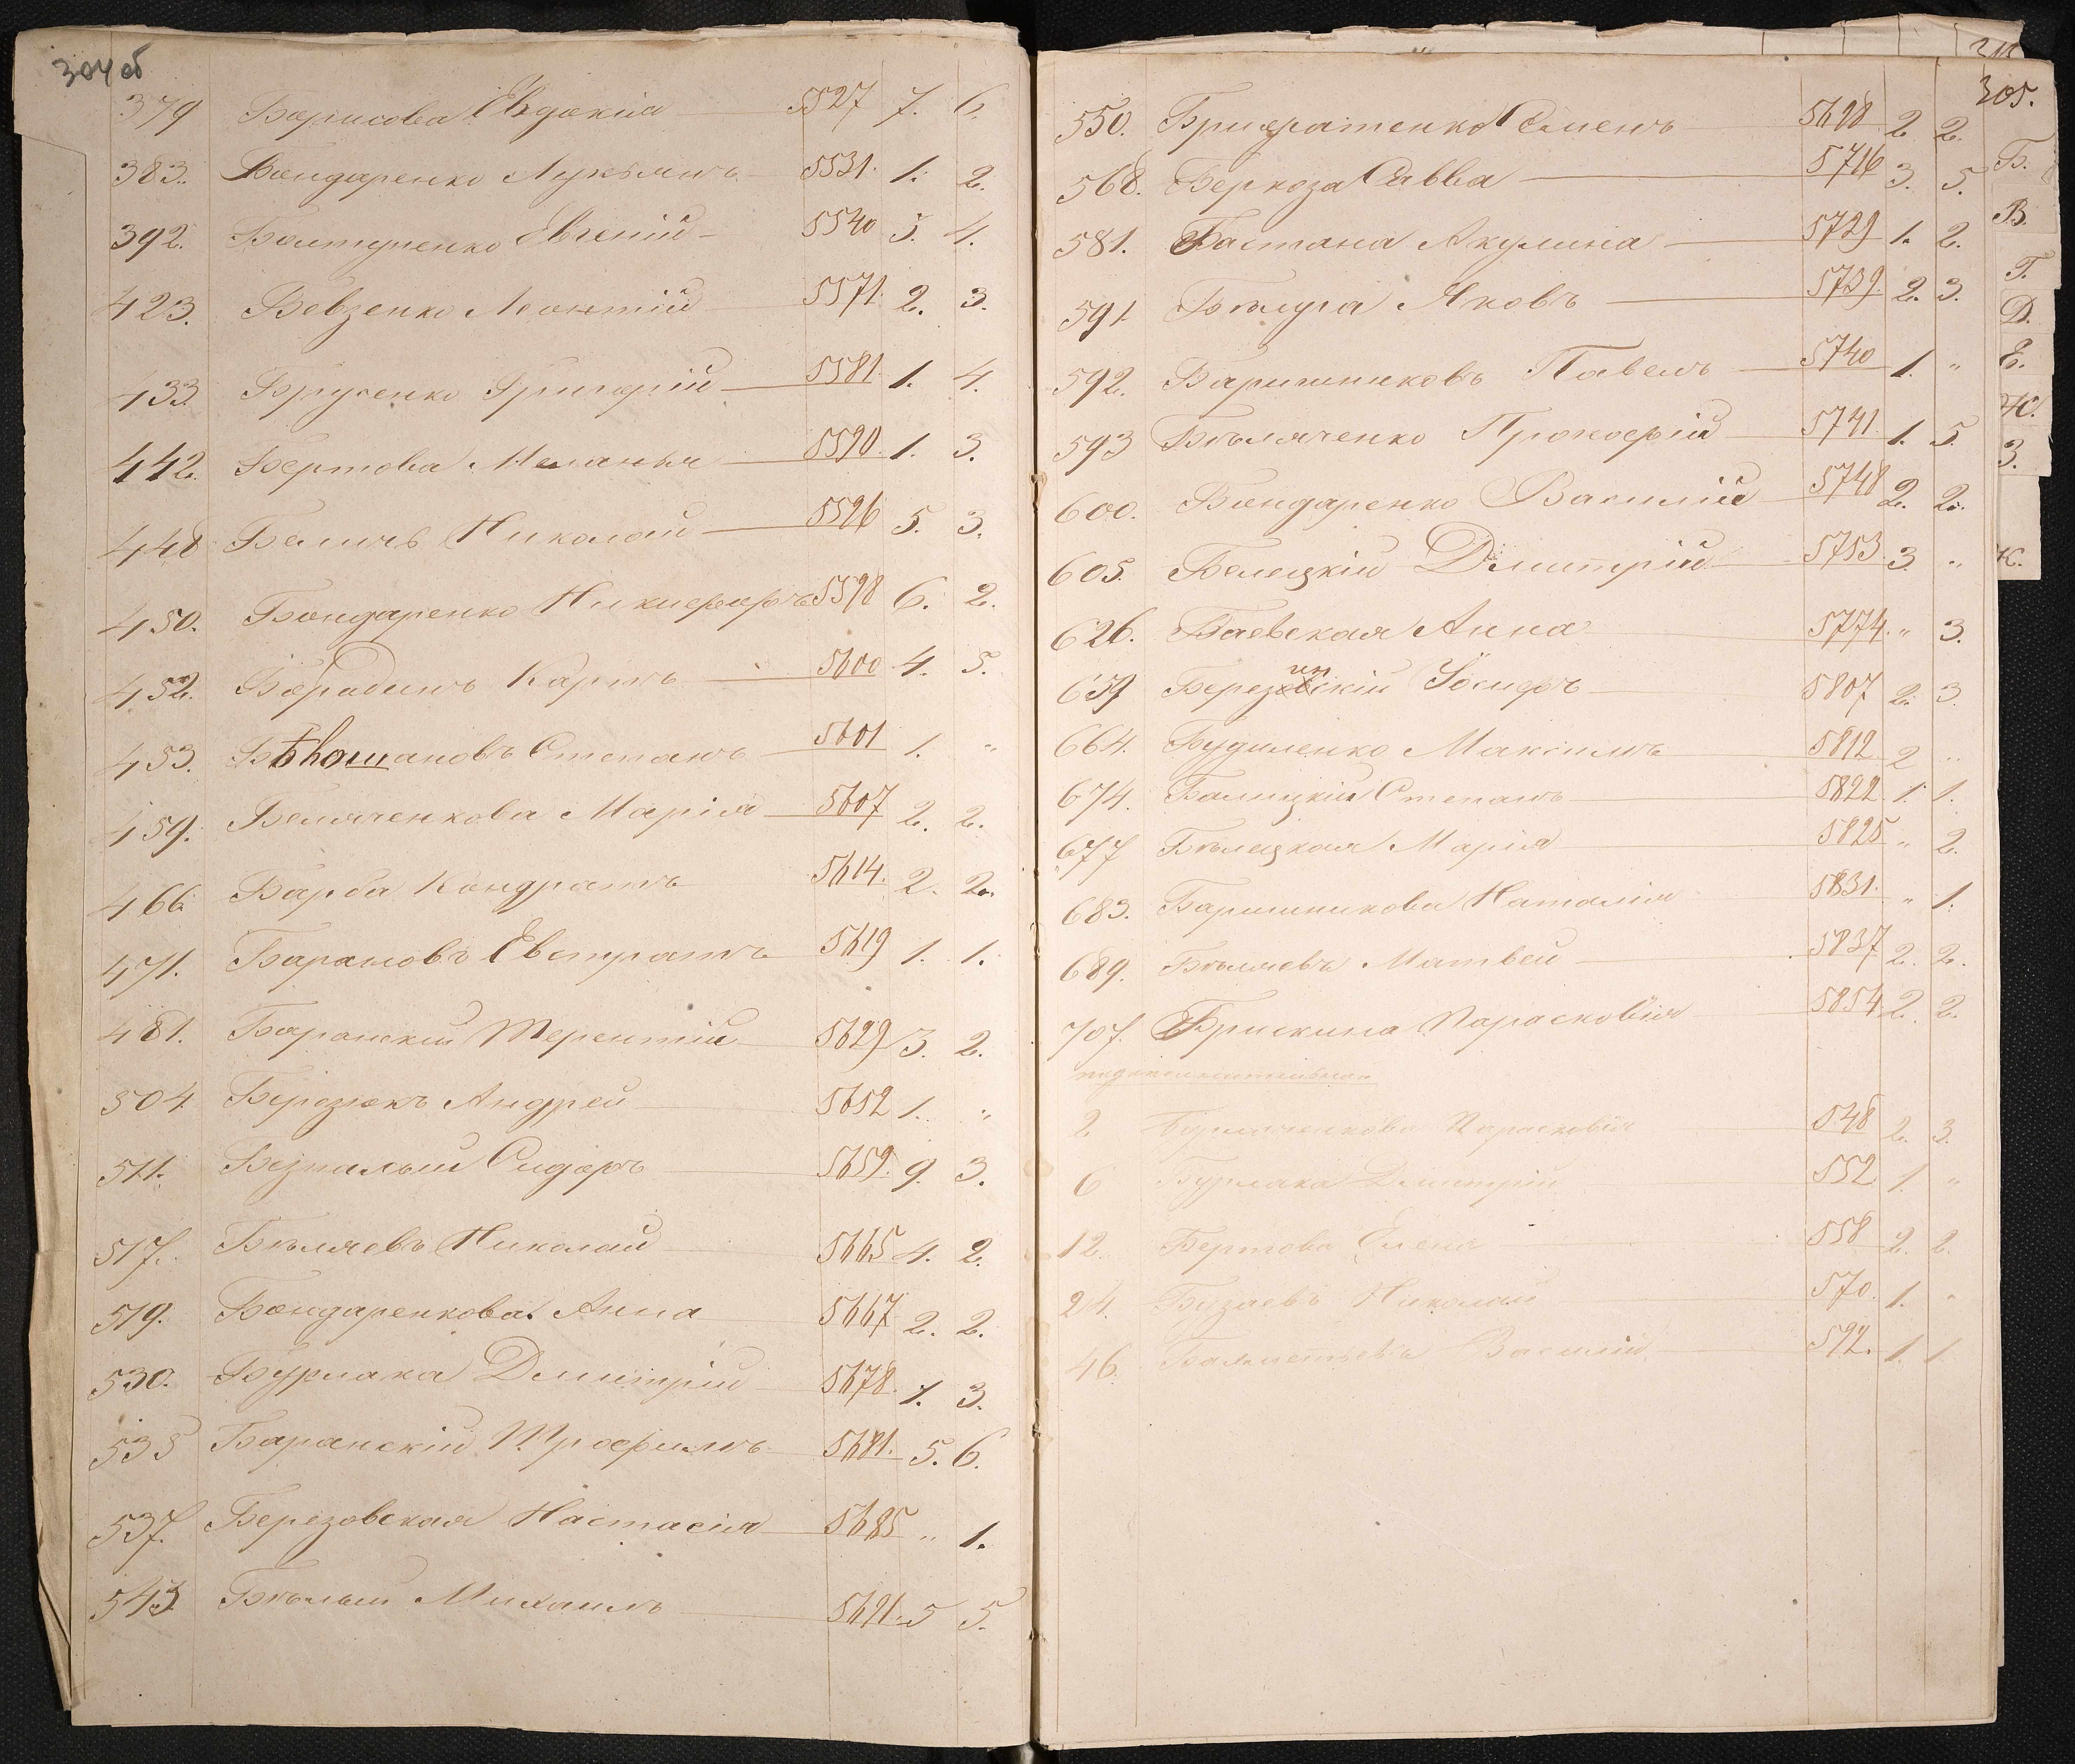 304 об
379 Борисова Евдокія 5527 7. 6.
383. Бондаренко Лукьянъ 5531. 1. 2.
392. Болтученко Евгеній 5540 5. 4.
423. Бевзенко Леонтій 5571. 2. 3.
433. Брусенко Григорій 5581. 1. 4.
442. Бертова Меланья 5590. 1. 3.
448 Беличъ Николай 5596 5. 3.
450. Бондаренко Никифоръ 5598 6. 2.
452. Бородинъ Карпъ 5600 4. 5.
453. Степанъ 5601 1. "
459. Беляченкова Марія 5607 2. 2.
466 Барба Кондратъ 5614. 2. 2.
471. Барановъ Евстратъ 5619 1. 1.
481. Баранскій Терентій 5629 3. 2.
504. Березюкъ Андрей 5652 1. "
511. Безпалый Сидоръ 5659. 9. 3.
517. Бѣляевъ Николай 5665 4. 2.
519. Бондаренкова Анна 5667 2. 2.
530. Бурлака Дмитрій 5678. 1. 3.
535 Баранскій Трофимъ 5681. 5. 6.
537. Березовская Настасія 5685 " 1.
543 Бѣлый Михаилъ 5691. 5 5.
305.
550. Семенъ 5698 2. 2.
568. Беркоза Савва 5716 3. 5.
581. Бастана Акулина 5729 1. 2.
591. Бѣлуга Яковъ 5739. 2. 3.
592. Баришниковъ Павелъ 5740 1. "
593 Бѣляченко Прокофій 5741. 1. 5.
600. Бондаренко Василій 5748 2. 2.
605. Белецкій Дмитрій 5753. 3. "
626. Баевская Анна 5774. " 3.
659 Березинскій Іосифъ 5807 2. 3.
664. Будиленко Максимъ 5812. 2 "
674. Балицкій Степанъ 5822. 1. 1.
677 Бѣлецкая Марія 5825 " 2.
683. Баришникова Наталія 5831. " 1.
689. Бѣляевъ Матвей 5837. 2. 2.
707. Брискина Парасковія 5854. 2. 2.
2. Парасковія 548 2. 3.
6 Бурлака Дмитрій 552 1. "
12. Бертова Елена 558 2. 2.
24. Бузаевъ Николай 570. 1. "
46. Василій 592. 1. 1
Б.
В.
Г.
Д.
Е.
Ж.
З.
К.